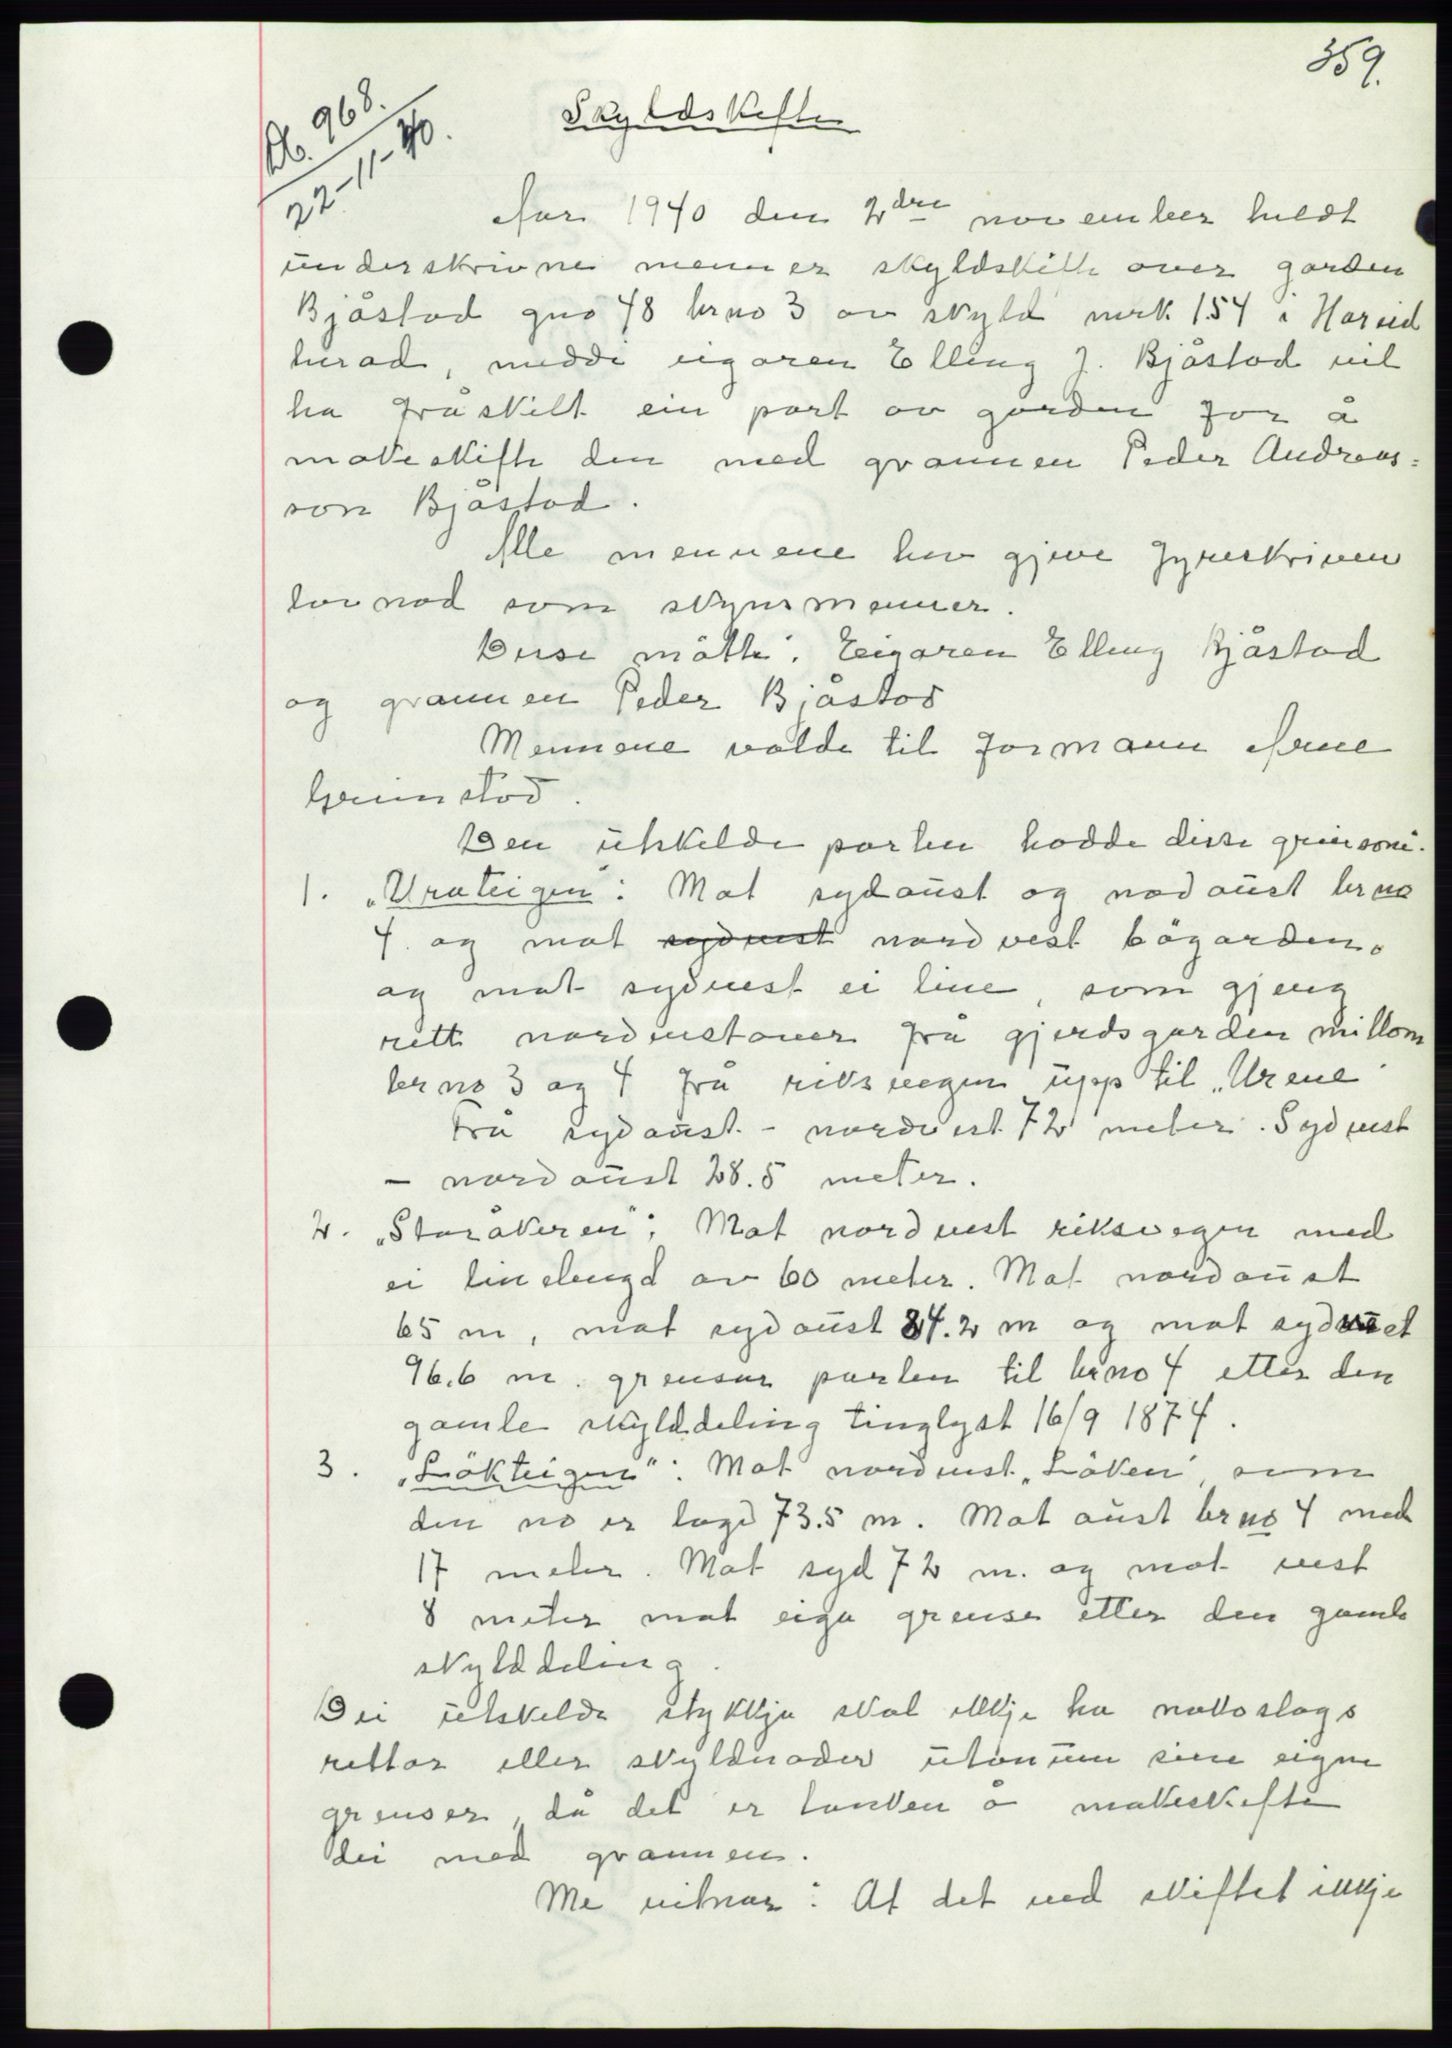 359.
Db. 968.
22-11-40.
Skyldskifte
Aar 1940 den 2dre november heldt
underskrivne menner skyldskifte over garden
Bjåstad gno 48 brno 3 av skyld mrk. 1.54 i Hareid
herad, medde eigaren Elling J. Bjåstad vil
ha fråskilt ein part av garden for å
makeskifte den med grannen Peder Andreas=
son Bjåstad.
Alle mennene hev gjeve fyreskriven
lovnad som skynsmenner.
Desse møtte: Eigaren Elling Bjåstad
og grannen Peder Bjåstad
Mennene valde til formann Arne
Grimstad.
Den utskilde parten hadde disse greinsone:
1. „Urateigen": Mot sydaust og nordaust brno
4. og mot sydvest nordvest bøgarden.
og mot sydvest ei line, som gjeng
rett nordvestover frå gjerdsgarden millom
brno 3 og 4 frå riksvegen upp til „Urene"
Frå sydaust - nordvest 72 meter. Sydvest
- nordaust 28.5 meter.
2. „Storåkeren": Mot nordvest riksvegen med
ei linelengd av 60 meter. Mot nordaust
65 m, mot sydaust 24.2 m og mot sydvest
96.6 m. grensar parten til brno 4 etter den
gamle skylddeling tinglyst 16/9 1874.
3. „Løkteigen": Mot nordvest „Løken", som
den no er lagd 73.5 m. Mot aust brno 4 med
17 meter. Mot syd 72 m. og mot vest
8 meter mot eiga grense etter den gamle
skylddeling.
Dei utskilde stykkje skal ikkje ha nokoslags
rettar eller skyldnader utanum sine eigne
grenser, då det er tanken å makeskifte
dei med grannen.
Me vitnar: At det ved skiftet ikkje